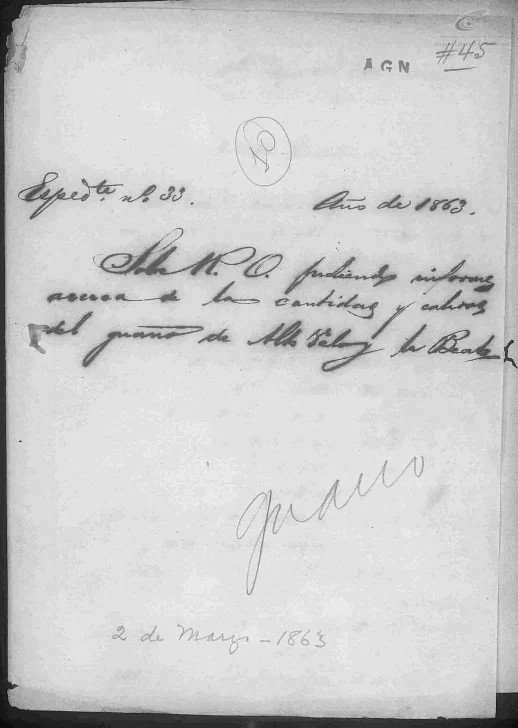 AGN #45
Espedte. nº. 33. Año de 1863.
Sobre R. O. pidiendo informes
acerca de la cantidad y
del guano de Alta Vela y la Beata
guano
2 de Marzo - 1863